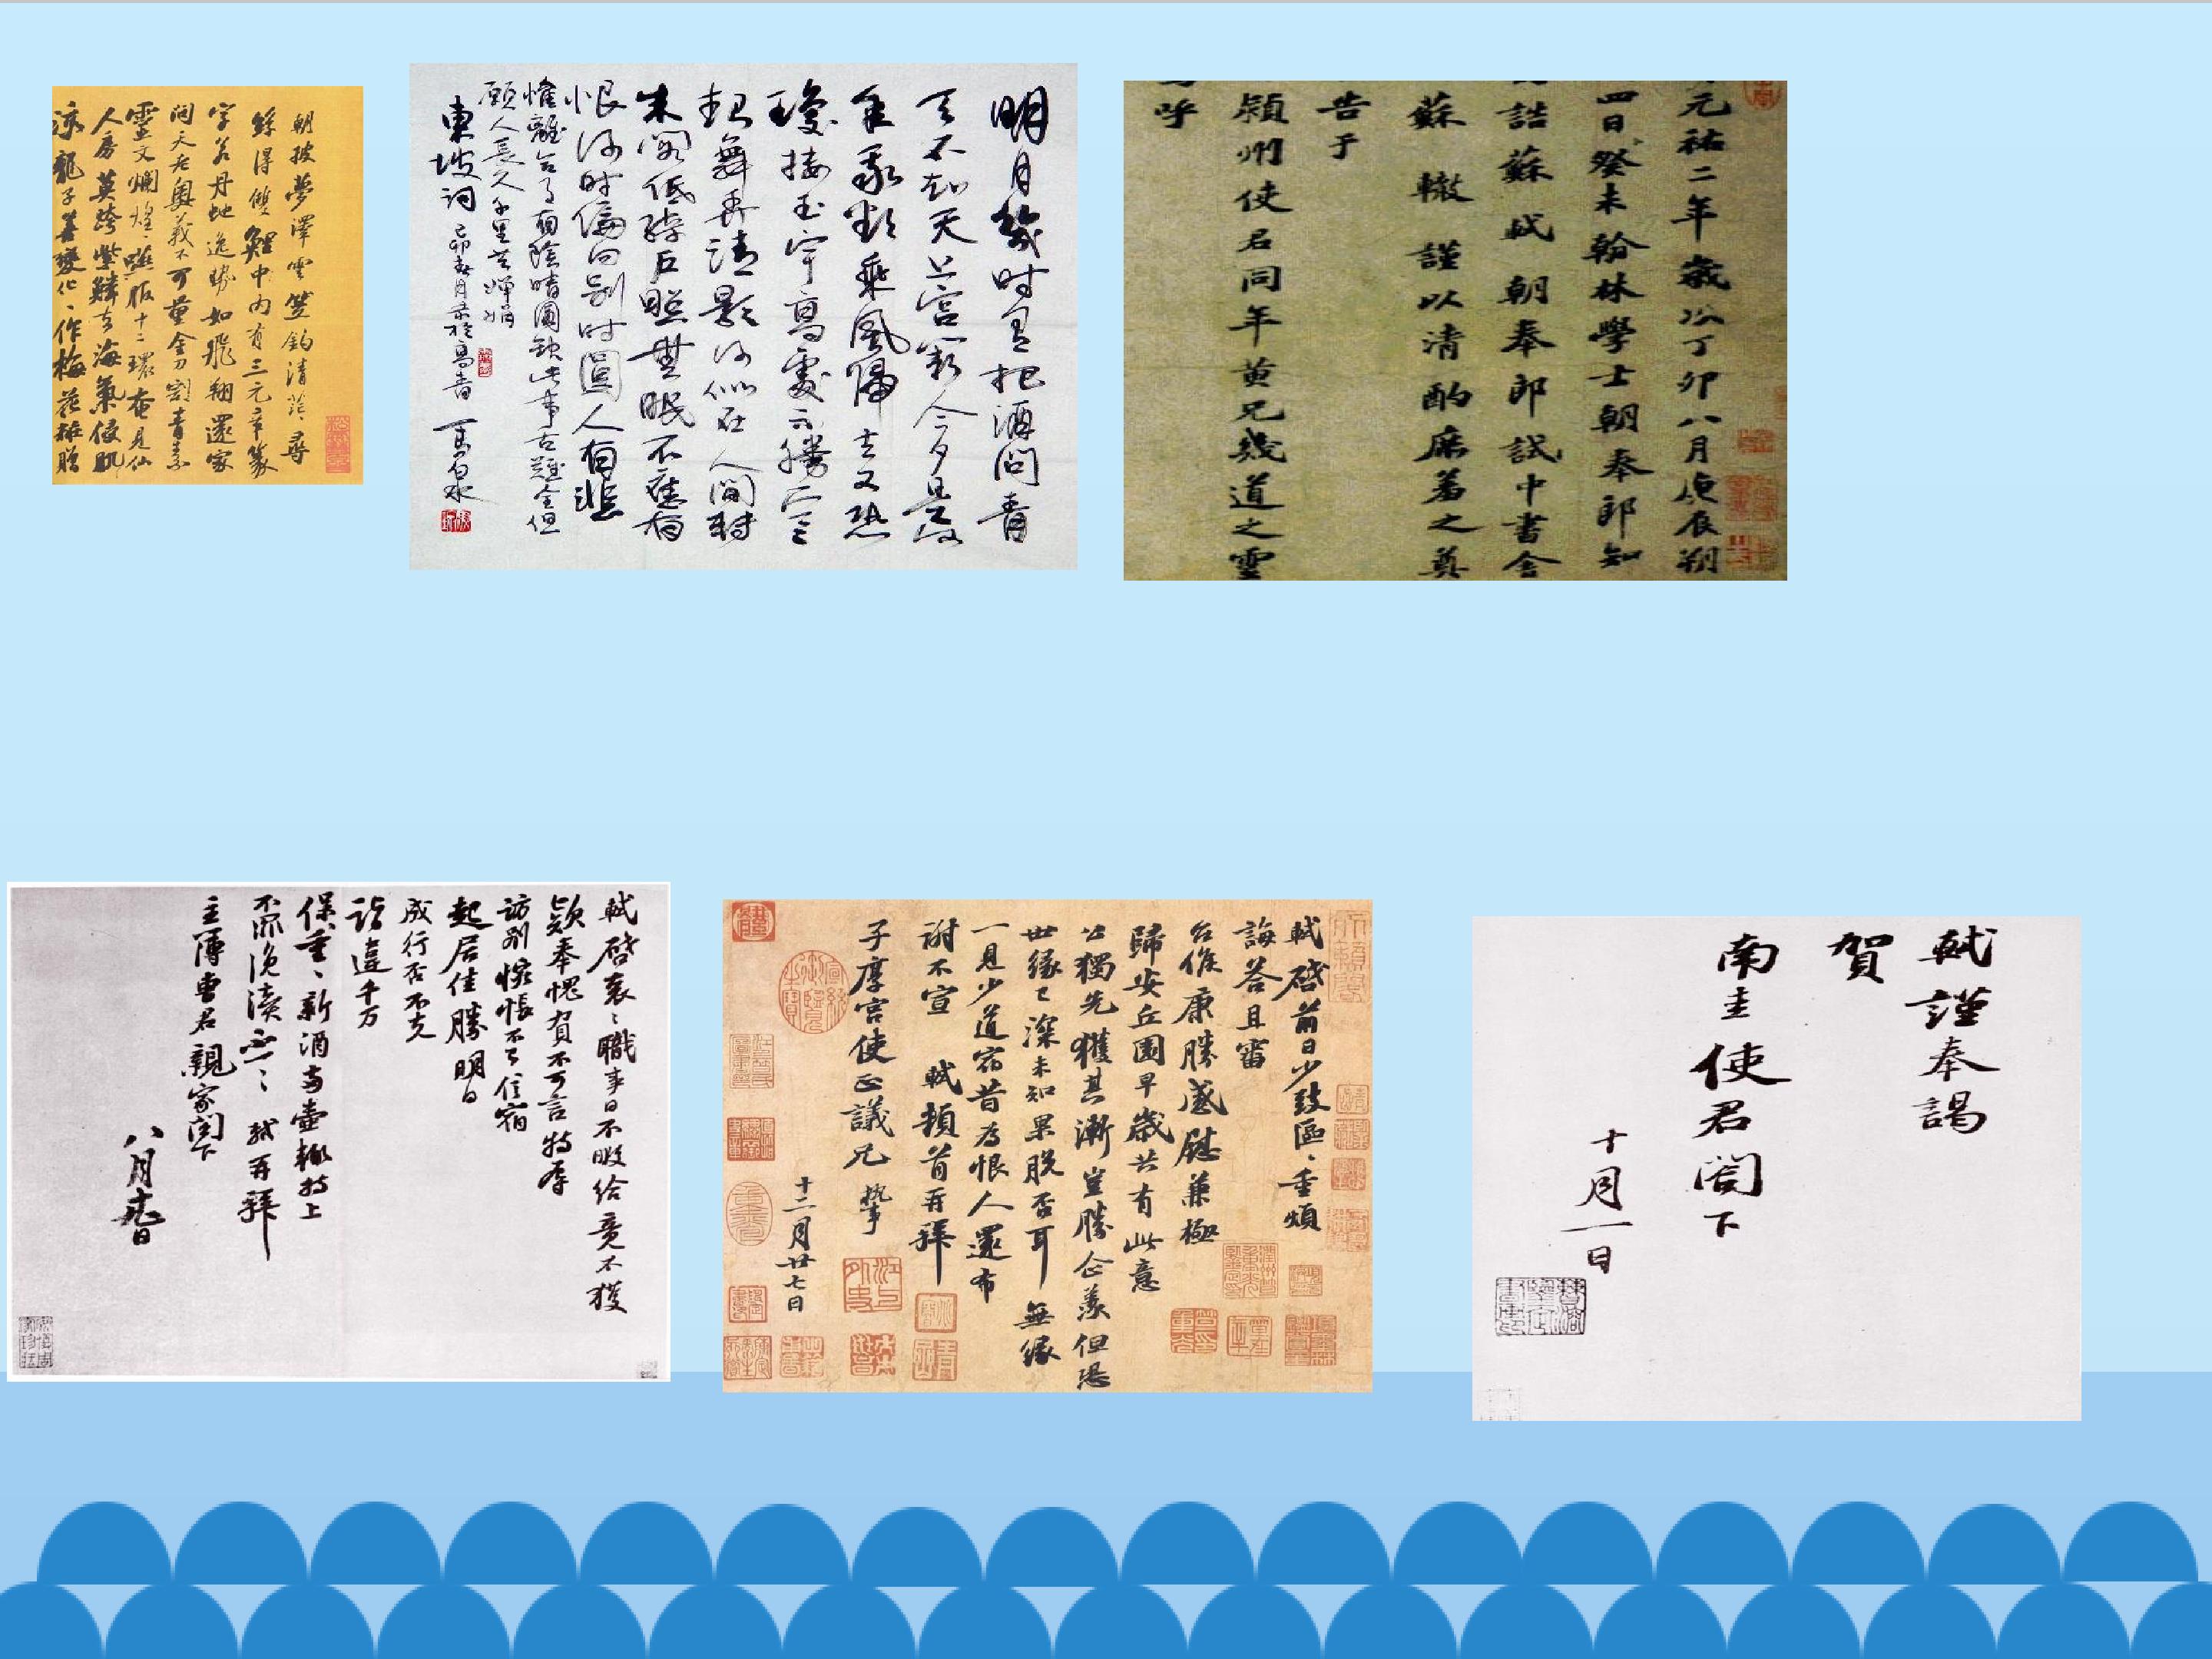 朝披夢澤雲笠釣清茫茫尋
絲得雙鯉中內有三元章篆
字若丹虵逸勢如飛翔還家
問天老奧義不可量金刀割青素
靈文爛煌煌嚥服十二環奄見仙
人房莫跨紫鱗去海氣侵肌
涼龍子善變化化作梅花粧贈
明月幾时有把酒问青
天不知天上宫闕今夕是何
年我欲乘風歸去又恐
瓊楼玉宇高處不勝寒
起舞弄清影何似在人间转
朱阁低绮户照無眠不應有
恨何时偏向别时圆人有悲
惟離合月有陰晴圆缺此事古難全但
願人長久千里共嬋娟
東坡词 己卯
元祐二年歲次丁卯八月庚辰朔
四日癸未翰林學士朝奉郎知
誥蘇軾朝奉郎試中書舍
蘇轍謹以清酌庶羞之奠
告于
潁州使君同年黃兄幾道之靈
嗚呼
軾啓衰衰職事日不暇給竟不獲
款奉愧負不可言特辱
訪別惋悵不已信宿
起居佳勝明日
成行否不克
詣違千万
保重保重新酒兩壺輒持上
不罪浼瀆不一不一 軾再拜
主簿曹君親家閣下
八月
軾啓前日少致區區重煩
誨答且審
台候康勝感慰兼極
歸安丘園早歲共有此意
公獨先獲其漸豈勝企羨但恐
世緣已深未知果脫否耳無緣
一見少道宿昔為恨人還布
謝不宣 軾頓首再拜
子厚宮使正議兄執事
十二月廿七日
軾謹奉謁
賀
南圭使君閣下
十月一日